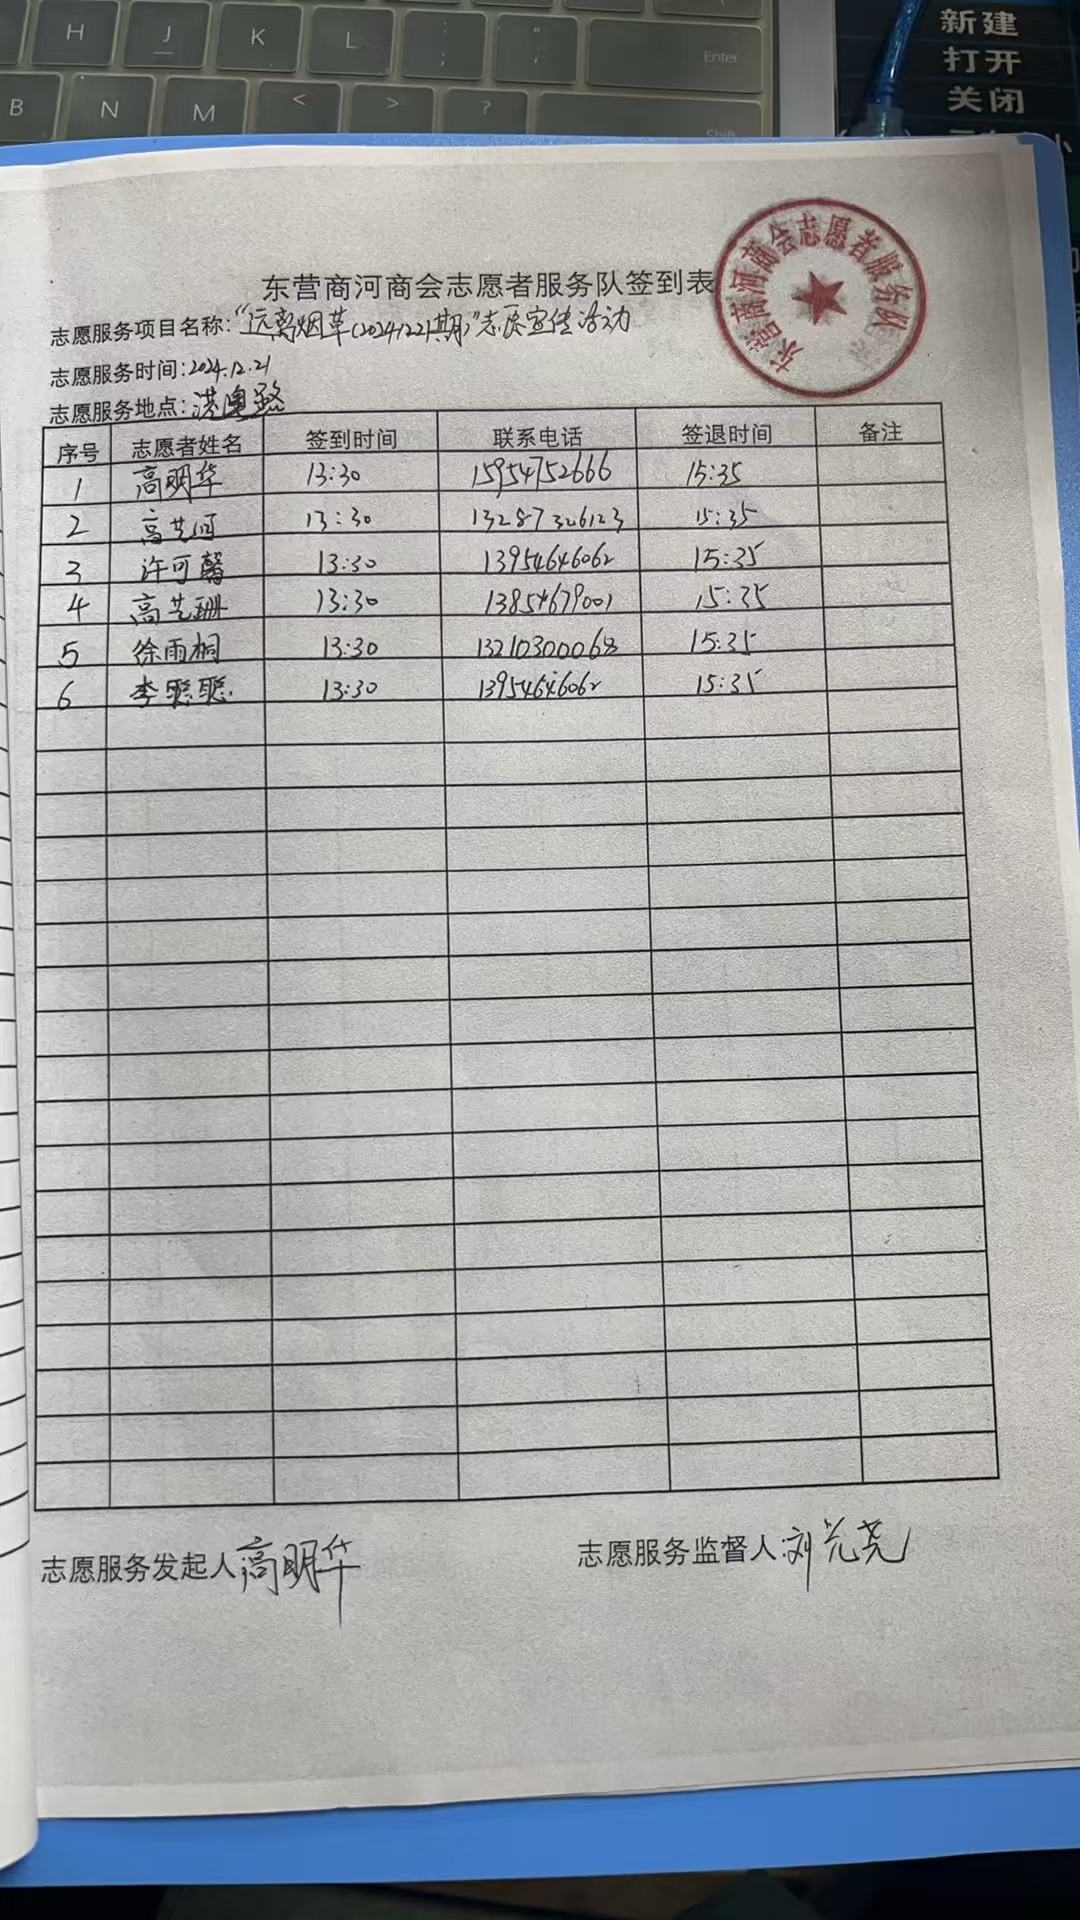 H J K L : ; " ' Enter
B N M < > ? Shift
新建
打开
关闭
小
东营商河商会志愿者服务队签到表
东营商河商会志愿者服务队
志愿服务项目名称:“远离烟草(20241221期)”志愿宣传活动
志愿服务时间:2024.12.21
志愿服务地点:港粤路
序号 志愿者姓名 签到时间 联系电话 签退时间 备注
1 高明华 13:30 15954752666 15:35
2 高艺河 13:30 13287326123 15:35
3 许可馨 13:30 13954646062 15:35
4 高艺珊 13:30 13854679001 15:35
5 徐雨桐 13:30 13210300068 15:35
6 李聪聪 13:30 13954646062 15:35
志愿服务发起人 高明华 志愿服务监督人 刘光尧